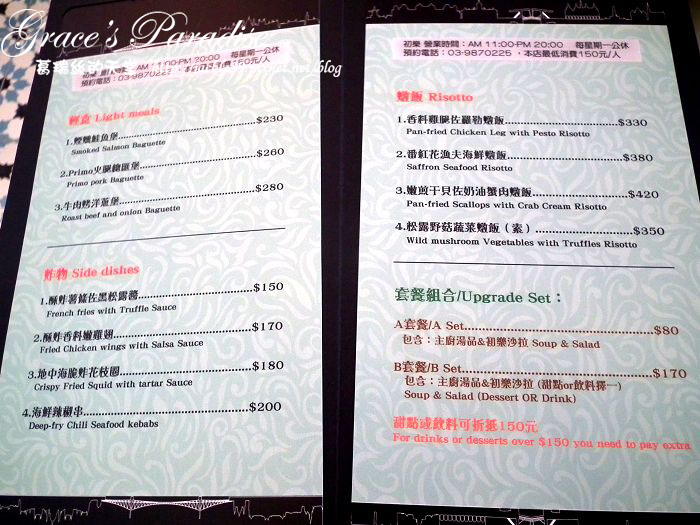 Grace's Paradi
葛瑞絲的
blog
預約電話：03-9870225，本店最低消費150元/人
輕食 Light meals
1.煙燻鮭魚堡 $230
Smoked Salmon Baguette
2.Primo火腿總匯堡 $260
Primo pork Baguette
3.牛肉烤洋蔥堡 $280
Roast beef and onion Baguette
炸物 Side dishes
1.酥炸薯條佐黑松露醬 $150
French fries with Truffle Sauce
2.酥炸香料嫩雞翅 $170
Fried Chicken wings with Salsa Sauce
3.地中海脆炸花枝圈 $180
Crispy Fried Squid with tartar Sauce
4.海鮮辣椒串 $200
Deep-fry Chili Seafood kebabs
初樂 營業時間：AM 11:00-PM 20:00 每星期一公休
預約電話：03-9870225，本店最低消費150元/人
燉飯 Risotto
1.香料雞腿佐羅勒燉飯 $330
Pan-fried Chicken Leg with Pesto Risotto
2.番紅花漁夫海鮮燉飯 $380
Saffron Seafood Risotto
3.嫩煎干貝佐奶油蟹肉燉飯 $420
Pan-fried Scallops with Crab Cream Risotto
4.松露野菇蔬菜燉飯（素） $350
Wild mushroom Vegetables with Truffles Risotto
套餐組合/Upgrade Set：
A套餐/A Set $80
包含：主廚湯品&初樂沙拉 Soup & Salad
B套餐/B Set $170
包含：主廚湯品&初樂沙拉 (甜點or飲料擇一)
Soup & Salad (Dessert OR Drink)
甜點或飲料可折抵150元
For drinks or desserts over $150 you need to pay extra